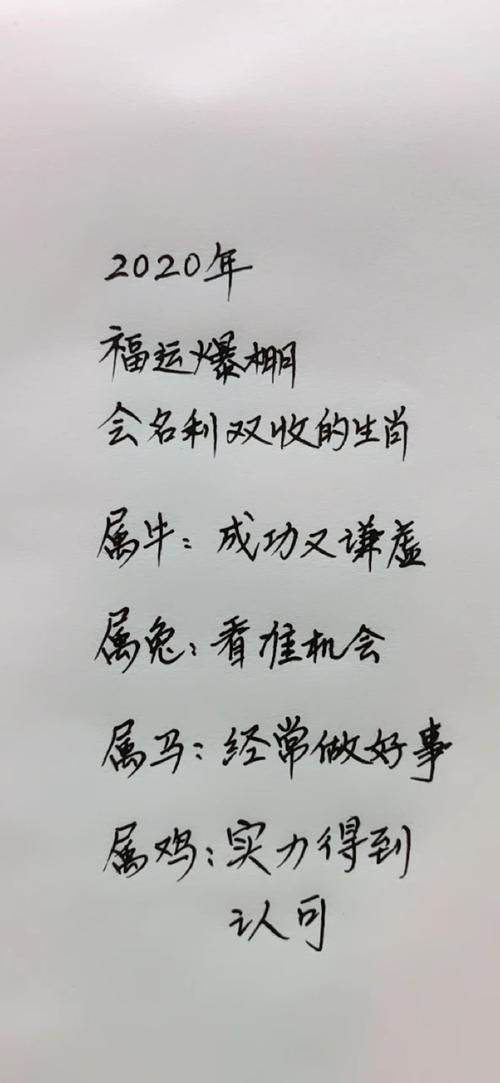 2020年
福运爆棚
会名利双收的生肖
属牛：成功又谦虚
属兔：看准机会
属马：经常做好事
属鸡：实力得到
认可